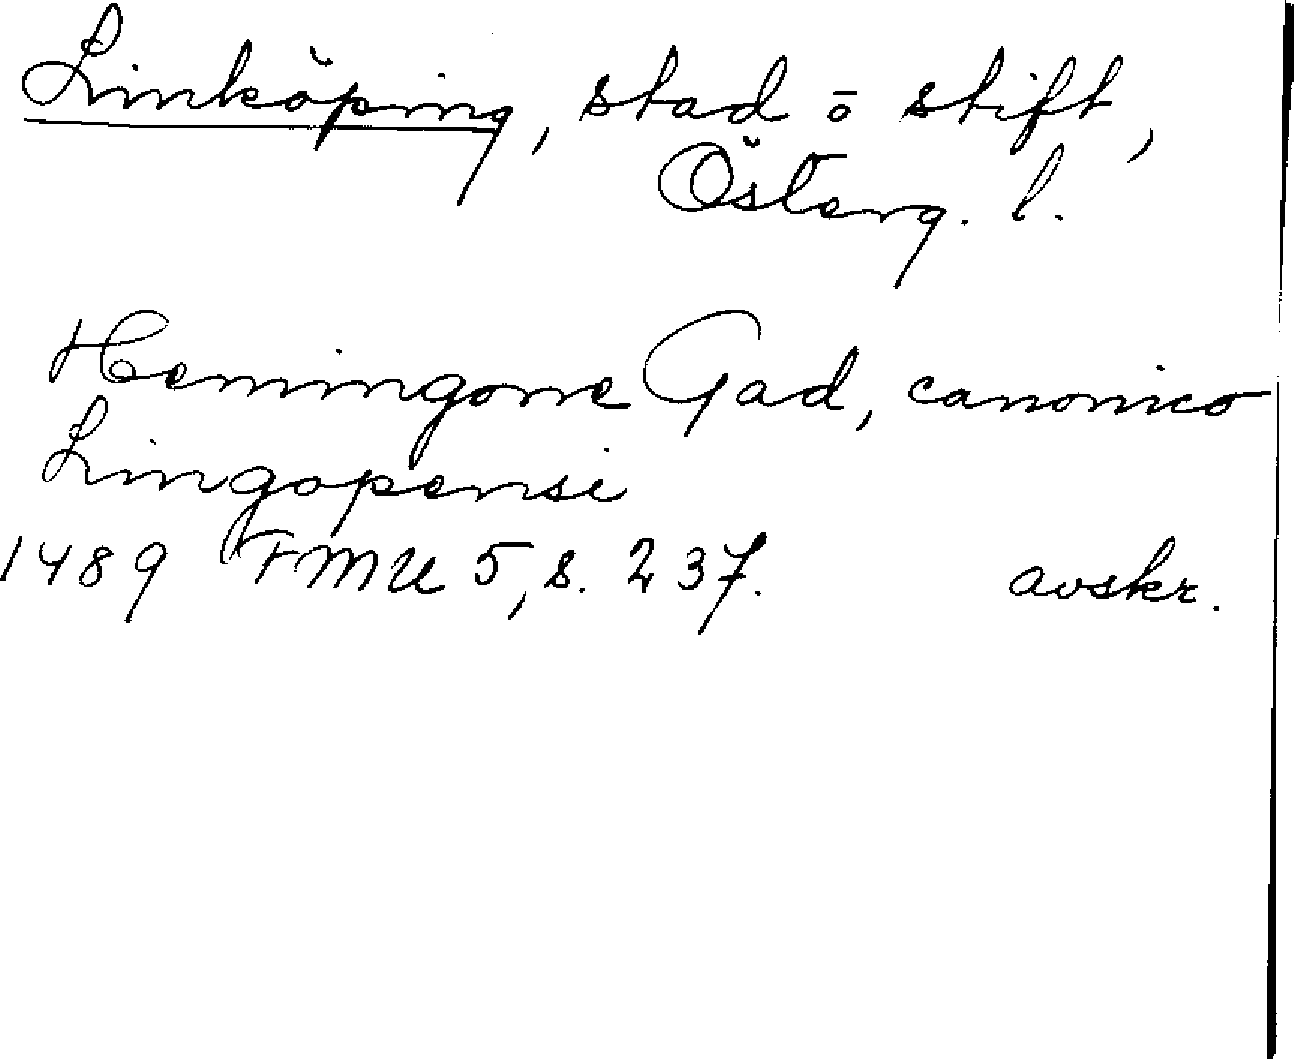 Linköping, stad o stift,
Österg. l.
Hemingone Gad, canonico
Lingopensi
1489 FMU 5, s. 237. avskr.